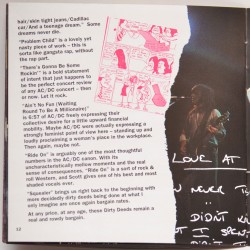 hair/skin tight jeans/Cadillac
car/And a teenage dream." Some
dreams never die.
"Problem Child" is a lovely yet
nasty piece of work – this is
sorta like gangsta rap, without
the rap part.
"There's Gonna Be Some
Rockin'" is a bold statement
of intent that just happens to
be the perfect concert review
of any AC/DC concert – then
or now. Let it rock.
"Ain't No Fun (Waiting
Round To Be A Millionaire)"
is 6:57 of AC/DC freely expressing
their collective desire for a little upward financial
mobility. Maybe AC/DC were actually expressing a
strongly feminist point of view here – standing up and
loudly proclaiming a woman's place is in the workplace.
Then again, maybe not.
"Ride On" is arguably one of the most thoughtful
numbers in the AC/DC canon. With its
uncharacteristically mellow moments and the real
sense of consequences, "Ride On" is sort of a rock &
roll Western, and Scott gives one of his best and most
shaded vocals ever.
"Squealer" brings us right back to the beginning with
more decidedly dirty deeds being done at what I
only imagine are once again bargain rates.
At any price, at any age, these Dirty Deeds remain a
real and rowdy bargain.
LOVE AT
NEVER
DIDN'T
DIDN'T